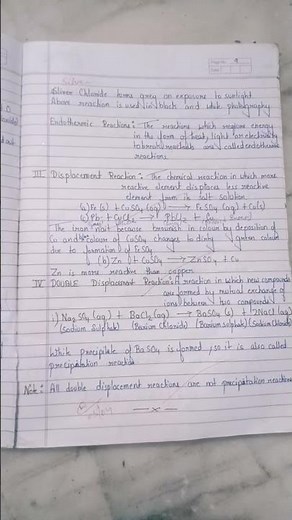 Silver Chloride turns grey on exposure to sunlight
Above reaction is used in black and white photography
Endothermic Reactions: The reactions which require energy
in the form of heat, light or electricity
to break reactants are called endothermic
reactions.
III Displacement Reaction: The chemical reaction in which more
reactive element displaces less reactive
element from its salt solution
(a) Fe(s) + CuSO4(aq) → FeSO4(aq) + Cu(s)
(c) Pb + CuCl2 → PbCl2 + Cu
The iron nail because brownish in colour by deposition of
Cu and colour of CuSO4 changes to dirty green colour
due to formation of FeSO4
(b) Zn + CuSO4 → ZnSO4 + Cu
Zn is more reactive than copper
IV DOUBLE Displacement Reaction: A reaction in which new compounds
are formed by mutual exchange of
ions between two compounds
1) Na2SO4(aq) + BaCl2(aq) → BaSO4(s) + 2NaCl(aq)
(Sodium sulphate) (Barium Chloride) (Barium sulphate) (Sodium Chloride)
White precipitate of BaSO4 is formed, so it is also called
precipitation reaction
Note: All double displacement reactions are not precipitation reactions
— x —